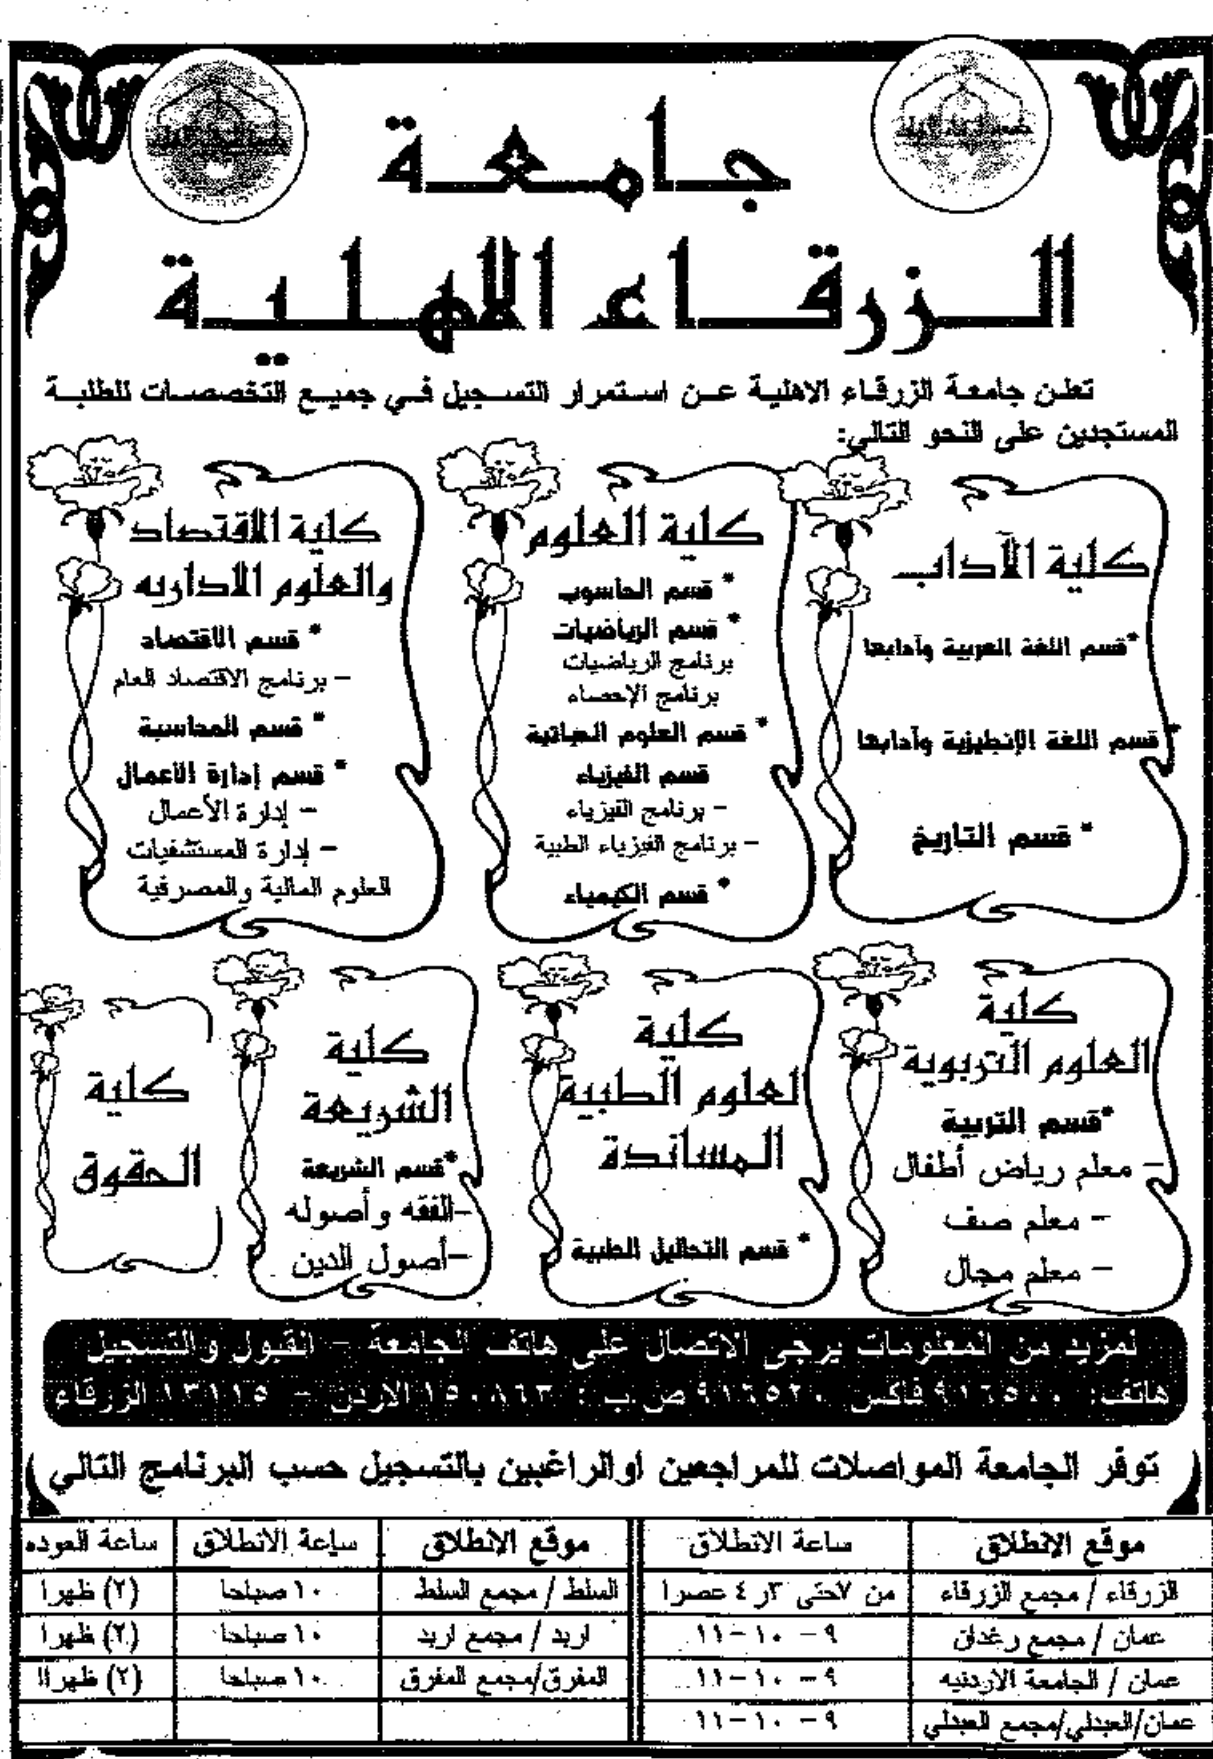 جامعة
الزرقاء الاهلية
تعلن جامعة الزرقاء الاهلية عن استمرار التسجيل في جميع التخصصات للطلبة
المستجدين على النحو التالي:
كلية الآداب
*قسم اللغة العربية وآدابها
* قسم اللغة الإنجليزية وآدابها
* قسم التاريخ
كلية العلوم
* قسم الحاسوب
* قسم الرياضيات
برنامج الرياضيات
برنامج الإحصاء
* قسم العلوم الحياتية
قسم الفيزياء
- برنامج الفيزياء
- برنامج الفيزياء الطبية
* قسم الكيمياء
كلية الاقتصاد
والعلوم الاداريه
* قسم الاقتصاد
- برنامج الاقتصاد العام
* قسم المحاسبة
* قسم إدارة الأعمال
- إدارة الأعمال
- إدارة المستشفيات
العلوم المالية والمصرفية
كلية
العلوم التربوية
*قسم التربية
- معلم رياض أطفال
- معلم صف
- معلم مجال
كلية
لعلوم الطبية
المساندة
* قسم التحاليل الطبية
كلية
الشريعة
*قسم الشريعة
-الفقه وأصوله
-أصول الدين
كلية
الحقوق
لمزيد من المعلومات يرجى الاتصال على هاتف الجامعة - القبول والتسجيل
هاتف: فاكس ٩١٦٥٢٠ ص.ب : ١٥٠٨٦٣ الاردن - ١٣١١٥ الزرقاء
توفر الجامعة المواصلات للمراجعين اوالراغبين بالتسجيل حسب البرنامج التالي
موقع الانطلاق ساعة الانطلاق موقع الانطلاق ساعة الانطلاق ساعة العوده
الزرقاء / مجمع الزرقاء من ٧حتى ٣ر ٤ عصرا السلط / مجمع السلط ١٠ صباحا (٢) ظهرا
عمان / مجمع رغدان ٩- ١٠-١١ اربد / مجمع اربد ١٠ صباحا (٢) ظهرا
عمان / الجامعة الاردنيه ٩- ١٠-١١ المفرق/مجمع المفرق ١٠ صباحا (٢) ظهراا
عمان/العبدلي/مجمع العبدلي ٩- ١٠-١١